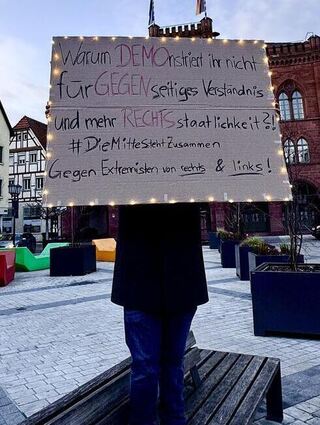 Warum DEMOnstriert ihr nicht
für GEGENseitiges Verständnis
und mehr RECHTSstaatlichkeit?!
#DieMitteStehtZusammen
Gegen Extremisten von rechts & links!